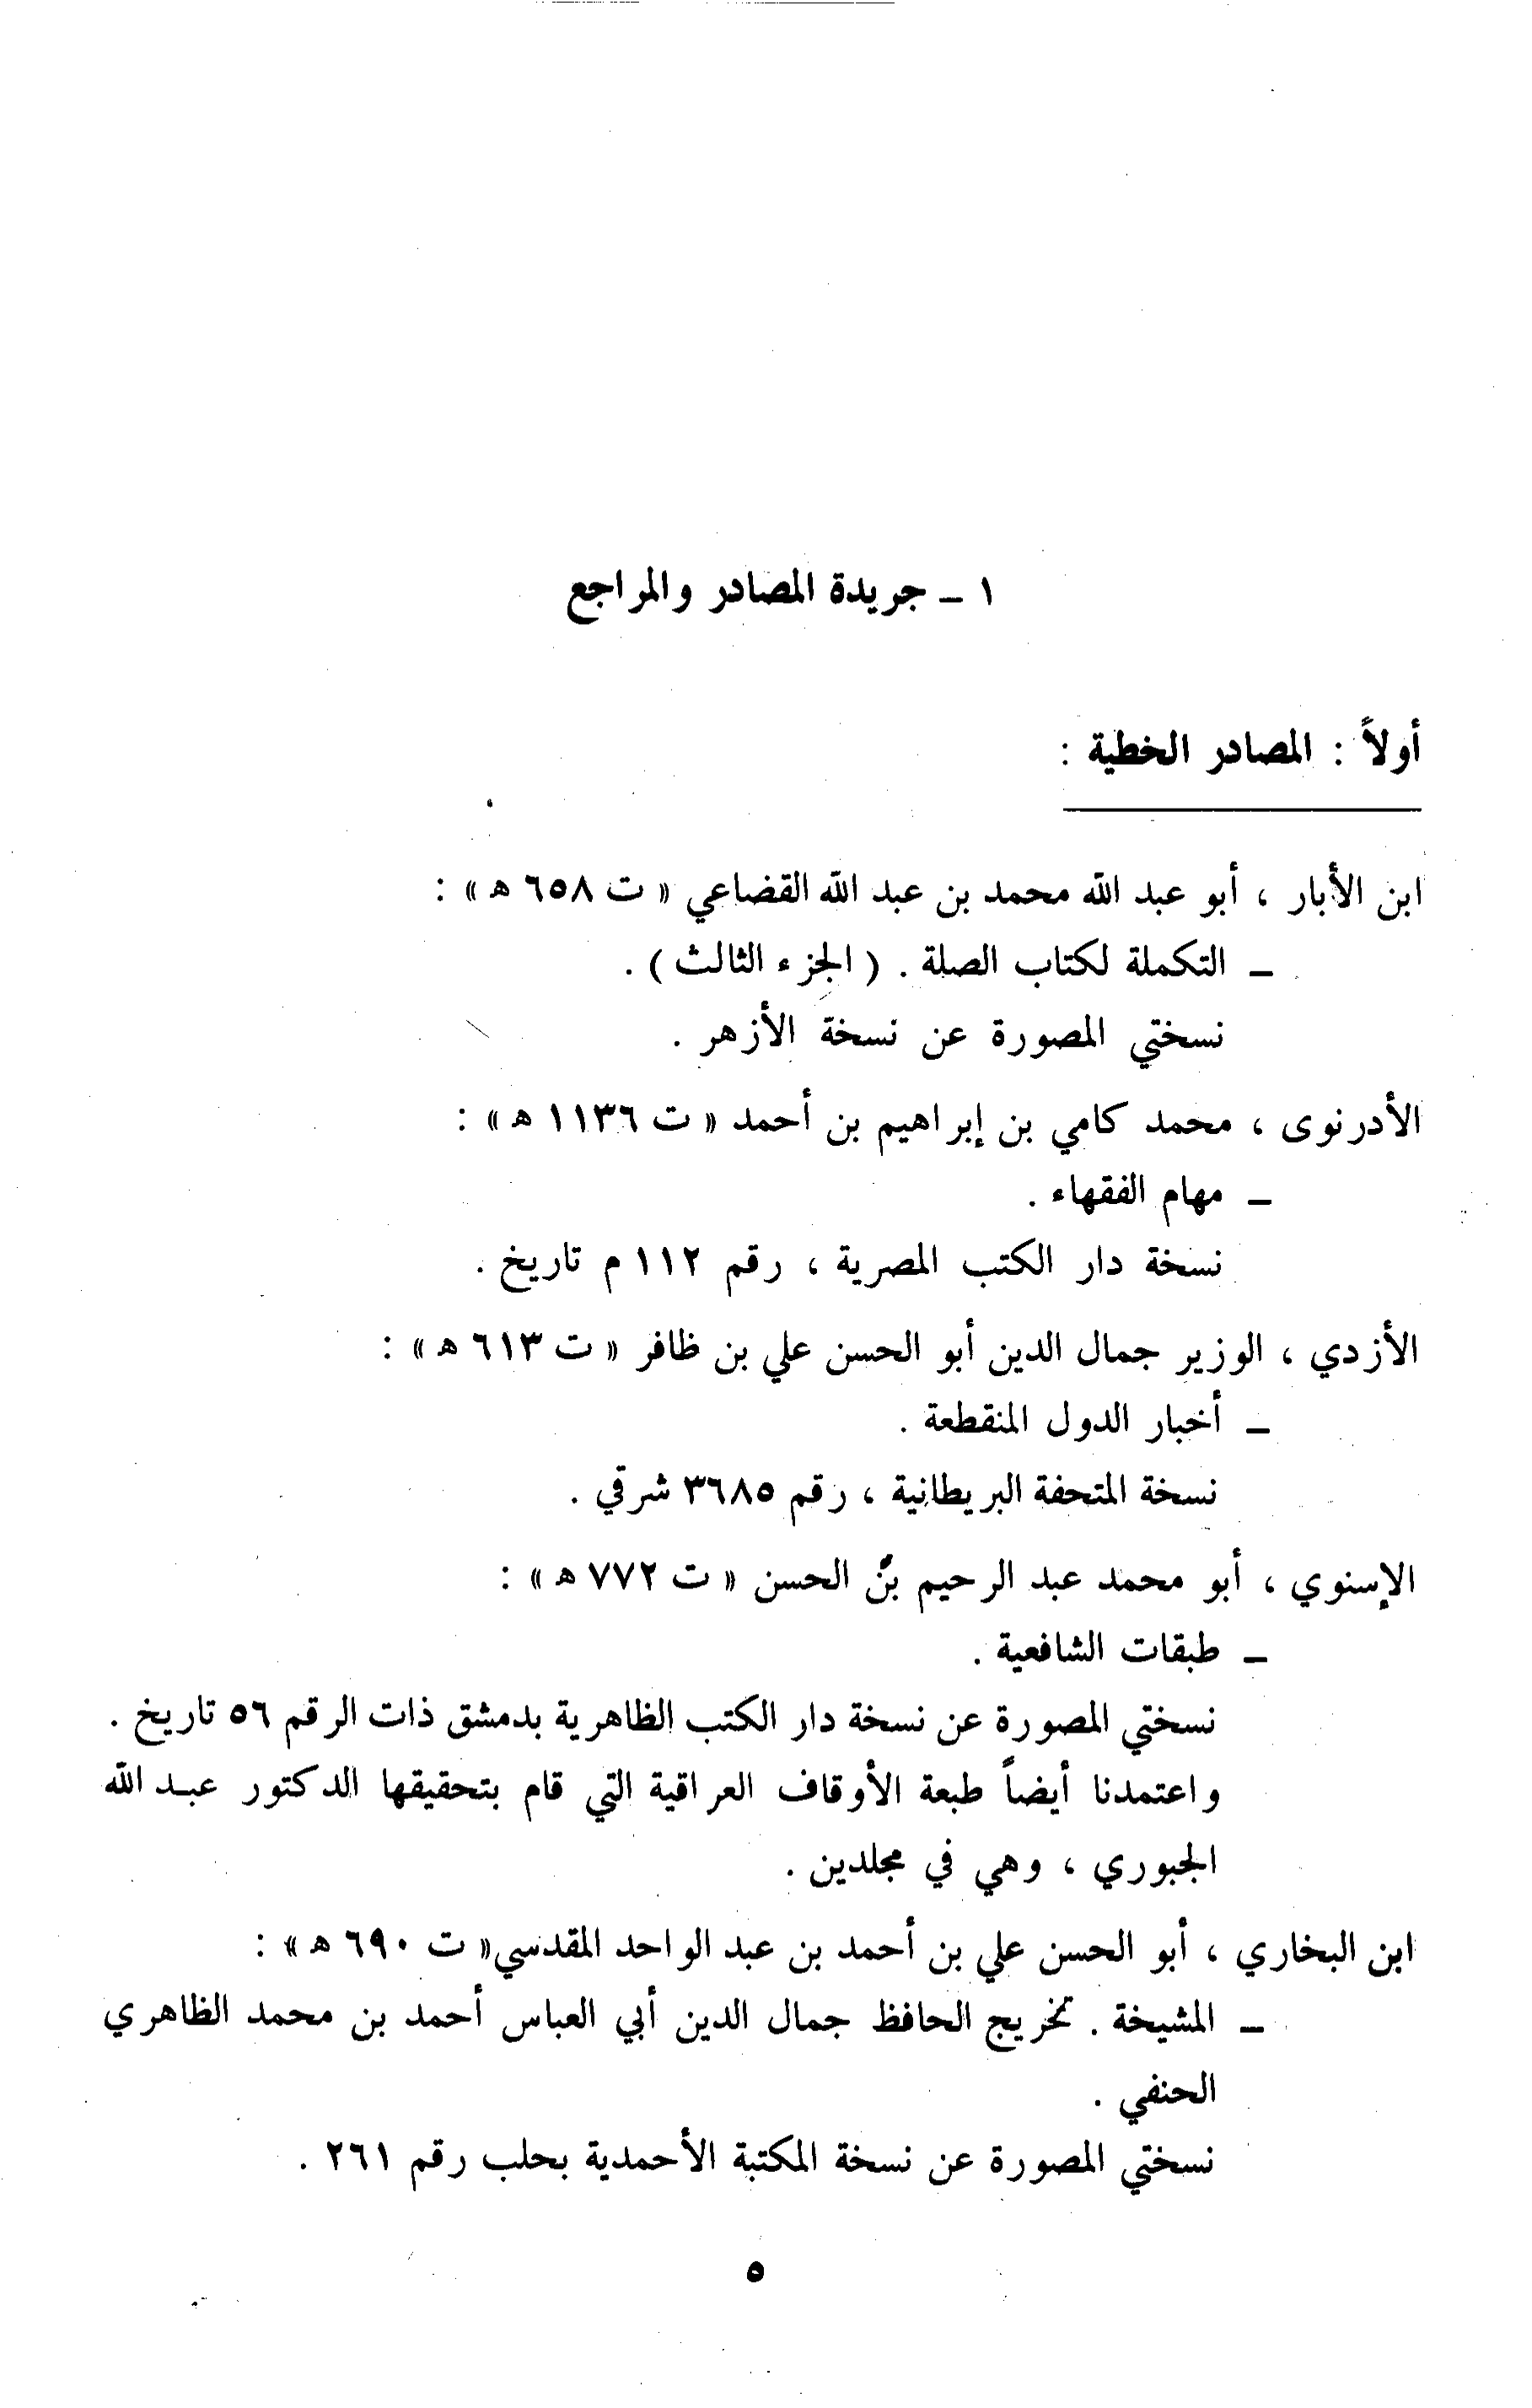 ١ – جريدة المصادر والمراجع
أولاً : المصادر الخطية :
ابن الأبار ، أبو عبد الله محمد بن عبد الله القضاعي « ت ٦٥٨ ه » :
– التكملة لكتاب الصلة . ( الجزء الثالث ) .
نسختي المصورة عن نسخة الأزهر .
الأدرنوى ، محمد كامي بن إبراهيم بن أحمد « ت ١١٣٦ ه » :
– مهام الفقهاء .
نسخة دار الكتب المصرية ، رقم ١١٢ م تاريخ .
الأزدي ، الوزير جمال الدين أبو الحسن علي بن ظافر « ت ٦١٣ ه » :
– أخبار الدول المنقطعة .
نسخة المتحفة البريطانية ، رقم ٣٦٨٥ شرقي .
الإسنوي ، أبو محمد عبد الرحيم بن الحسن « ت ٧٧٢ ه » :
– طبقات الشافعية .
نسختي المصورة عن نسخة دار الكتب الظاهرية بدمشق ذات الرقم ٥٦ تاريخ .
واعتمدنا أيضاً طبعة الأوقاف العراقية التي قام بتحقيقها الدكتور عبد الله
الجبوري ، وهي في مجلدين .
ابن البخاري ، أبو الحسن علي بن أحمد بن عبد الواحد المقدسي « ت ٦٩٠ ه » :
– المشيخة . تخريج الحافظ جمال الدين أبي العباس أحمد بن محمد الظاهري
الحنفي .
نسختي المصورة عن نسخة المكتبة الأحمدية بحلب رقم ٢٦١ .
٥